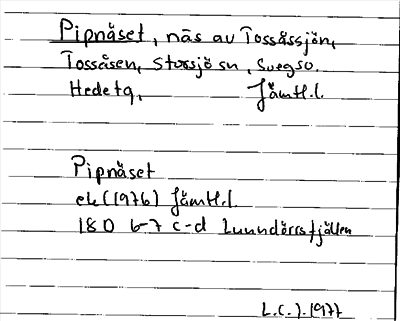 Pipnäset, näs av Tossåssjön,
Tossåsen, Storsjö sn, Svegs o.
Hede tg, Jämtl.l.
Pipnäset
ek (1976) Jämtl.l.
18D 6-7 c-d Lunndörrsfjällen
L.C.J. 1977